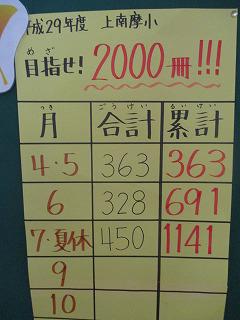 平成29年度 上南摩小
めざ
目指せ! 2000冊!!!
つき ごうけい るいけい
月 合計 累計
4・5 363 363
6 328 691
7・夏休 450 1141
9
10